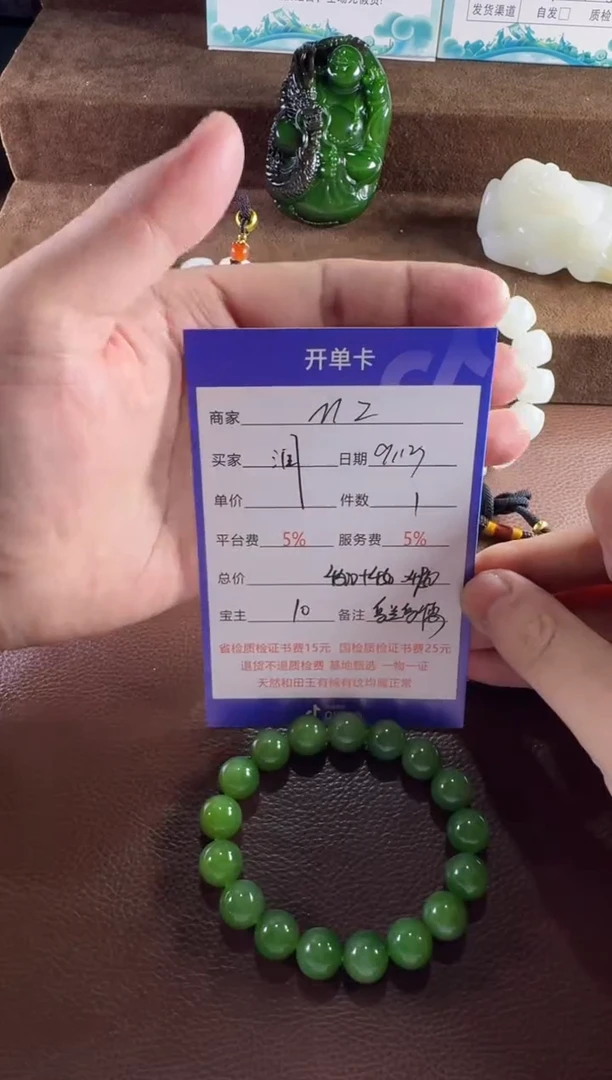 发货渠道 自发□ 质检
开单卡
商家 MZ
买家 润 日期 9.27
单价 件数 1
平台费 5% 服务费 5%
总价
宝主 10 备注
省检质检证书费15元 国检质检证书费25元
退货不退质检费 基地甄选 一物一证
天然和田玉有棉有纹均属正常